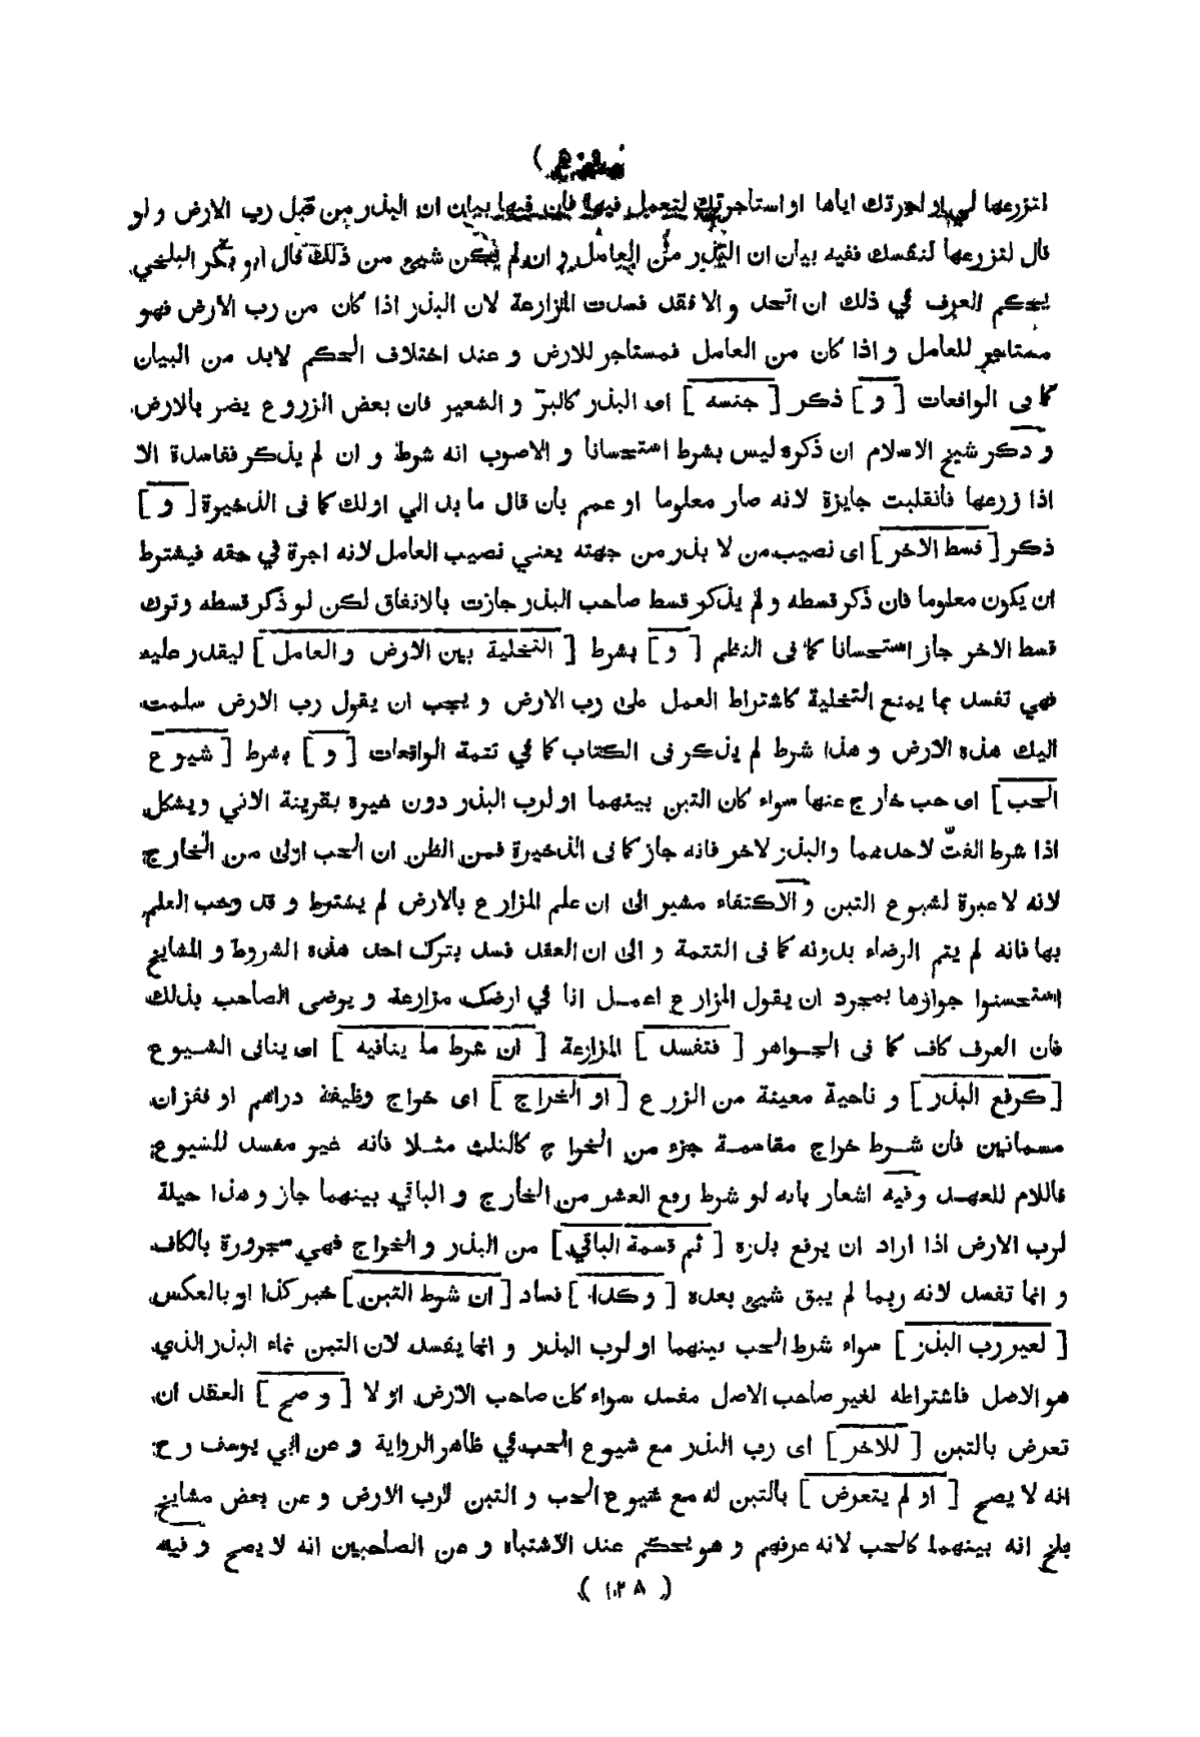 لتزرعها لي او اجرتك اياها او استاجرتك لتعمل فيها فان فيها بيان ان البذر من قبل رب الارض و لو
قال لتزرعها لنفسك ففيه بيان ان البذر من العامل و ان لم يكن شيئ من ذلك قال ابو بكر البلخي
يحكم العرف في ذلك ان اتحد و الا فقد فسدت المزارعة لان البذر اذا كان من رب الارض فهو
مستاجر للعامل و اذا كان من العامل فمستاجر للارض و عند اختلاف الحكم لابد من البيان
كما فى الواقعات [ و ] ذكر [ جنسه ] اى البذر كالبرّ و الشعير فان بعض الزروع يضر بالارض
و ذكر شيخ الاسلام ان ذكره ليس بشرط استحسانا و الاصوب انه شرط و ان لم يذكر ففاسدة الا
اذا زرعها فانقلبت جايزة لانه صار معلوما او عمم بأن قال ما بدا لي او لك كما فى الذخيرة [ و ]
ذكر [ قسط الاخر ] اى نصيب من لا بذر من جهته يعني نصيب العامل لانه اجرة في حقه فيشترط
ان يكون معلوما فان ذكر قسطه و لم يذكر قسط صاحب البذر جازت بالاتفاق لكن لو ذكر قسطه و ترك
قسط الاخر جاز استحسانا كما فى النظم [ و ] بشرط [ التخلية بين الارض و العامل ] ليقدر عليه
فهي تفسد بما يمنع التخلية كاشتراط العمل على رب الارض و يجب ان يقول رب الارض سلمت
اليك هذه الارض و هذا شرط لم يذكر فى الكتاب كما في تتمة الواقعات [ و ] بشرط [ شيوع
الحب ] اى حب خارج عنها سواء كان التبن بينهما او لرب البذر دون غيره بقرينة الاتي و يشكل
اذا شرط القتّ لاحدهما و البذر لاخر فانه جاز كما فى الذخيرة فمن الظن ان الحب اولى من الخارج
لانه لا عبرة لشيوع التبن و الاكتفاء مشير الى ان علم المزارع بالارض لم يشترط و قد وجب العلم
بها فانه لم يتم الرضاء بدونه كما فى التتمة و الى ان العقد فسد بترك احد هذه الشروط و المشايخ
استحسنوا جوازها بمجرد ان يقول المزارع اعمل انا في ارضك مزارعة و يرضى الصاحب بذلك
فان العرف كاف كما فى الجواهر [ فتفسد ] المزارعة [ ان شرط ما ينافيه ] اى ينافى الشيوع
[ كرفع البذر ] و ناحية معينة من الزرع [ او الخراج ] اى خراج وظيفة دراهم او قفزان
مسمانين فان شرط خراج مقاسمة جزء من الخراج كالثلث مثلا فانه غير مفسد للشيوع
فاللام للعهد و فيه اشعار بانه لو شرط رفع العشر من الخارج و الباقي بينهما جاز و هذا حيلة
لرب الارض اذا اراد ان يرفع بذره [ ثم قسمة الباقي ] من البذر و الخراج فهي مجرورة بالكاف
و انما تفسد لانه ربما لم يبق شيئ بعده [ و كذا ] فساد [ ان شرط التبن ] خبر كذا او بالعكس
[ لغير رب البذر ] سواء شرط الحب بينهما او لرب البذر و انما يفسد لان التبن نماء البذر الذي
هو الاصل فاشتراطه لغير صاحب الاصل مفسد سواء كان صاحب الارض او لا [ و صح ] العقد ان
تعرض بالتبن [ للاخر ] اى رب البذر مع شيوع الحب في ظاهر الرواية و عن ابي يوسف رح
انه لا يصح [ او لم يتعرض ] بالتبن له مع شيوع الحب و التبن لرب الارض و عن بعض مشايخ
بلخ انه بينهما كالحب لانه عرفهم و هو يحكم عند الاشتباه و عن الصاحبين انه لا يصح و فيه
( ١٠٢٨ )